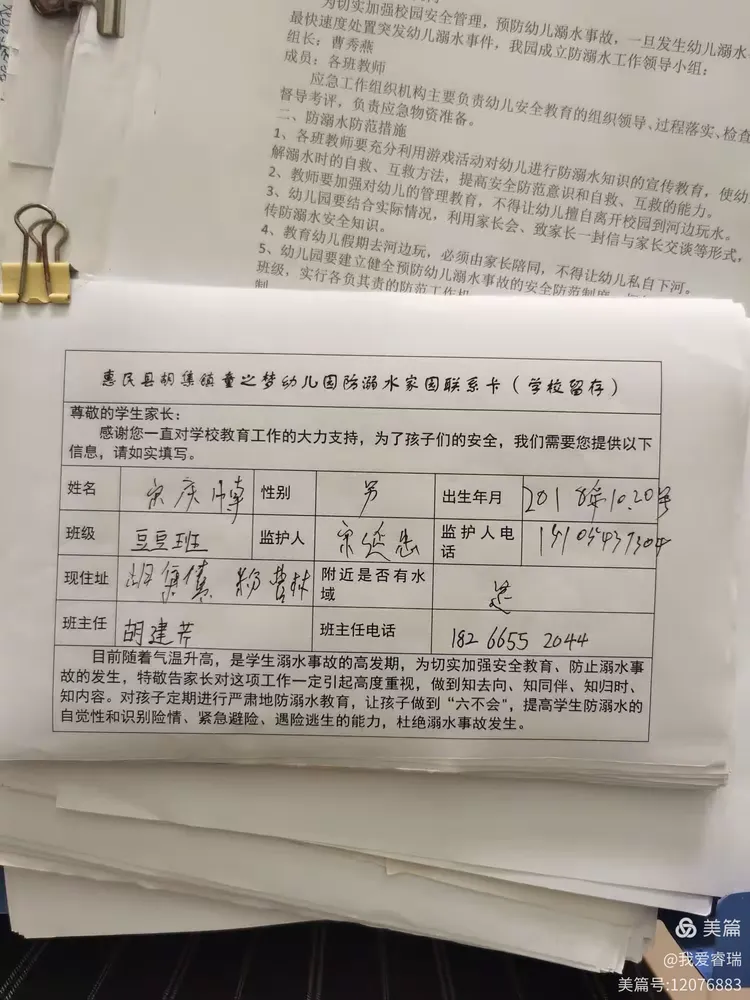 为切实加强校园安全管理，预防幼儿溺水事故，一旦发生幼儿溺水
最快速度处置突发幼儿溺水事件，我园成立防溺水工作领导小组；
组长：曹秀燕
成员：各班教师
应急工作组织机构主要负责幼儿安全教育的组织领导、过程落实、检查
督导考评，负责应急物资准备。
二、防溺水防范措施
1、各班教师要充分利用游戏活动对幼儿进行防溺水知识的宣传教育，使幼
解溺水时的自救、互救方法，提高安全防范意识和自救、互救的能力。
2、教师要加强对幼儿的管理教育，不得让幼儿擅自离开校园到河边玩水。
3、幼儿园要结合实际情况，利用家长会、致家长一封信与家长交谈等形式，
传防溺水安全知识。
4、教育幼儿假期去河边玩，必须由家长陪同，不得让幼儿私自下河。
5、幼儿园要建立健全预防幼儿溺水事故的安全防范制度，
班级，实行各负其责的防范工作机
制
惠民县胡集镇童之梦幼儿园防溺水家园联系卡（学校留存）
尊敬的学生家长：
感谢您一直对学校教育工作的大力支持，为了孩子们的安全，我们需要您提供以下
信息，请如实填写。
姓名 宗庆博 性别 男 出生年月 2018年10.20号
班级 豆豆班 监护人 宗延忠 监护人电话
现住址 胡集镇 附近是否有水域 是
班主任 胡建芹 班主任电话 182 6655 2044
目前随着气温升高，是学生溺水事故的高发期，为切实加强安全教育、防止溺水事
故的发生，特敬告家长对这项工作一定引起高度重视，做到知去向、知同伴、知归时、
知内容。对孩子定期进行严肃地防溺水教育，让孩子做到“六不会”，提高学生防溺水的
自觉性和识别险情、紧急避险、遇险逃生的能力，杜绝溺水事故发生。
美篇
@我爱睿瑞
美篇号:12076883